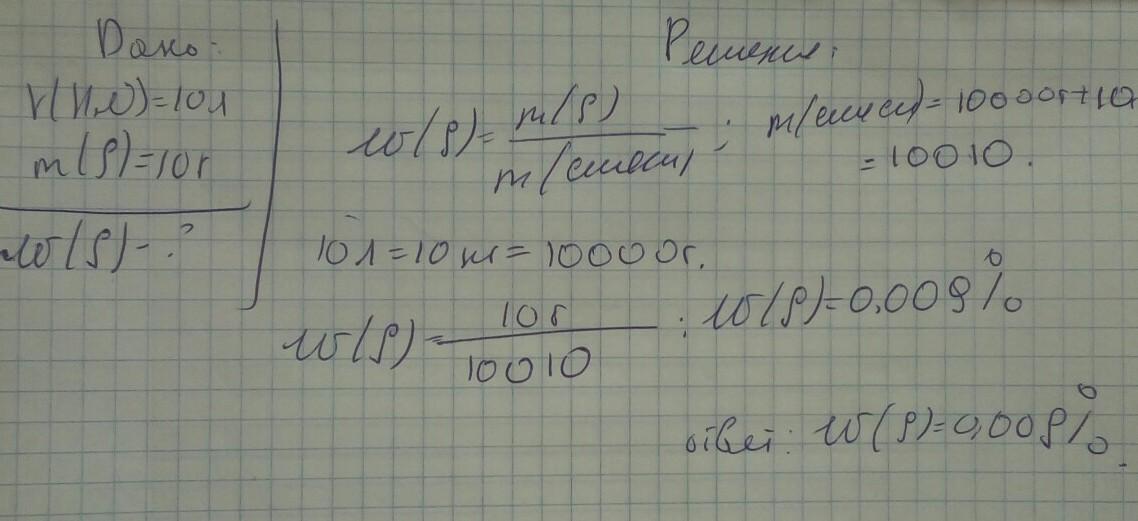 Дано:
V(H₂O)=10л
m(p)=10г
w(p)-?
Решение:
w(p)=m(p)/m(смеси); m(смеси)=10000г+10г
=10010.
10л=10кг=10000г.
w(p)=10г/10010; w(p)=0,009%
ответ: w(p)=0,009%.